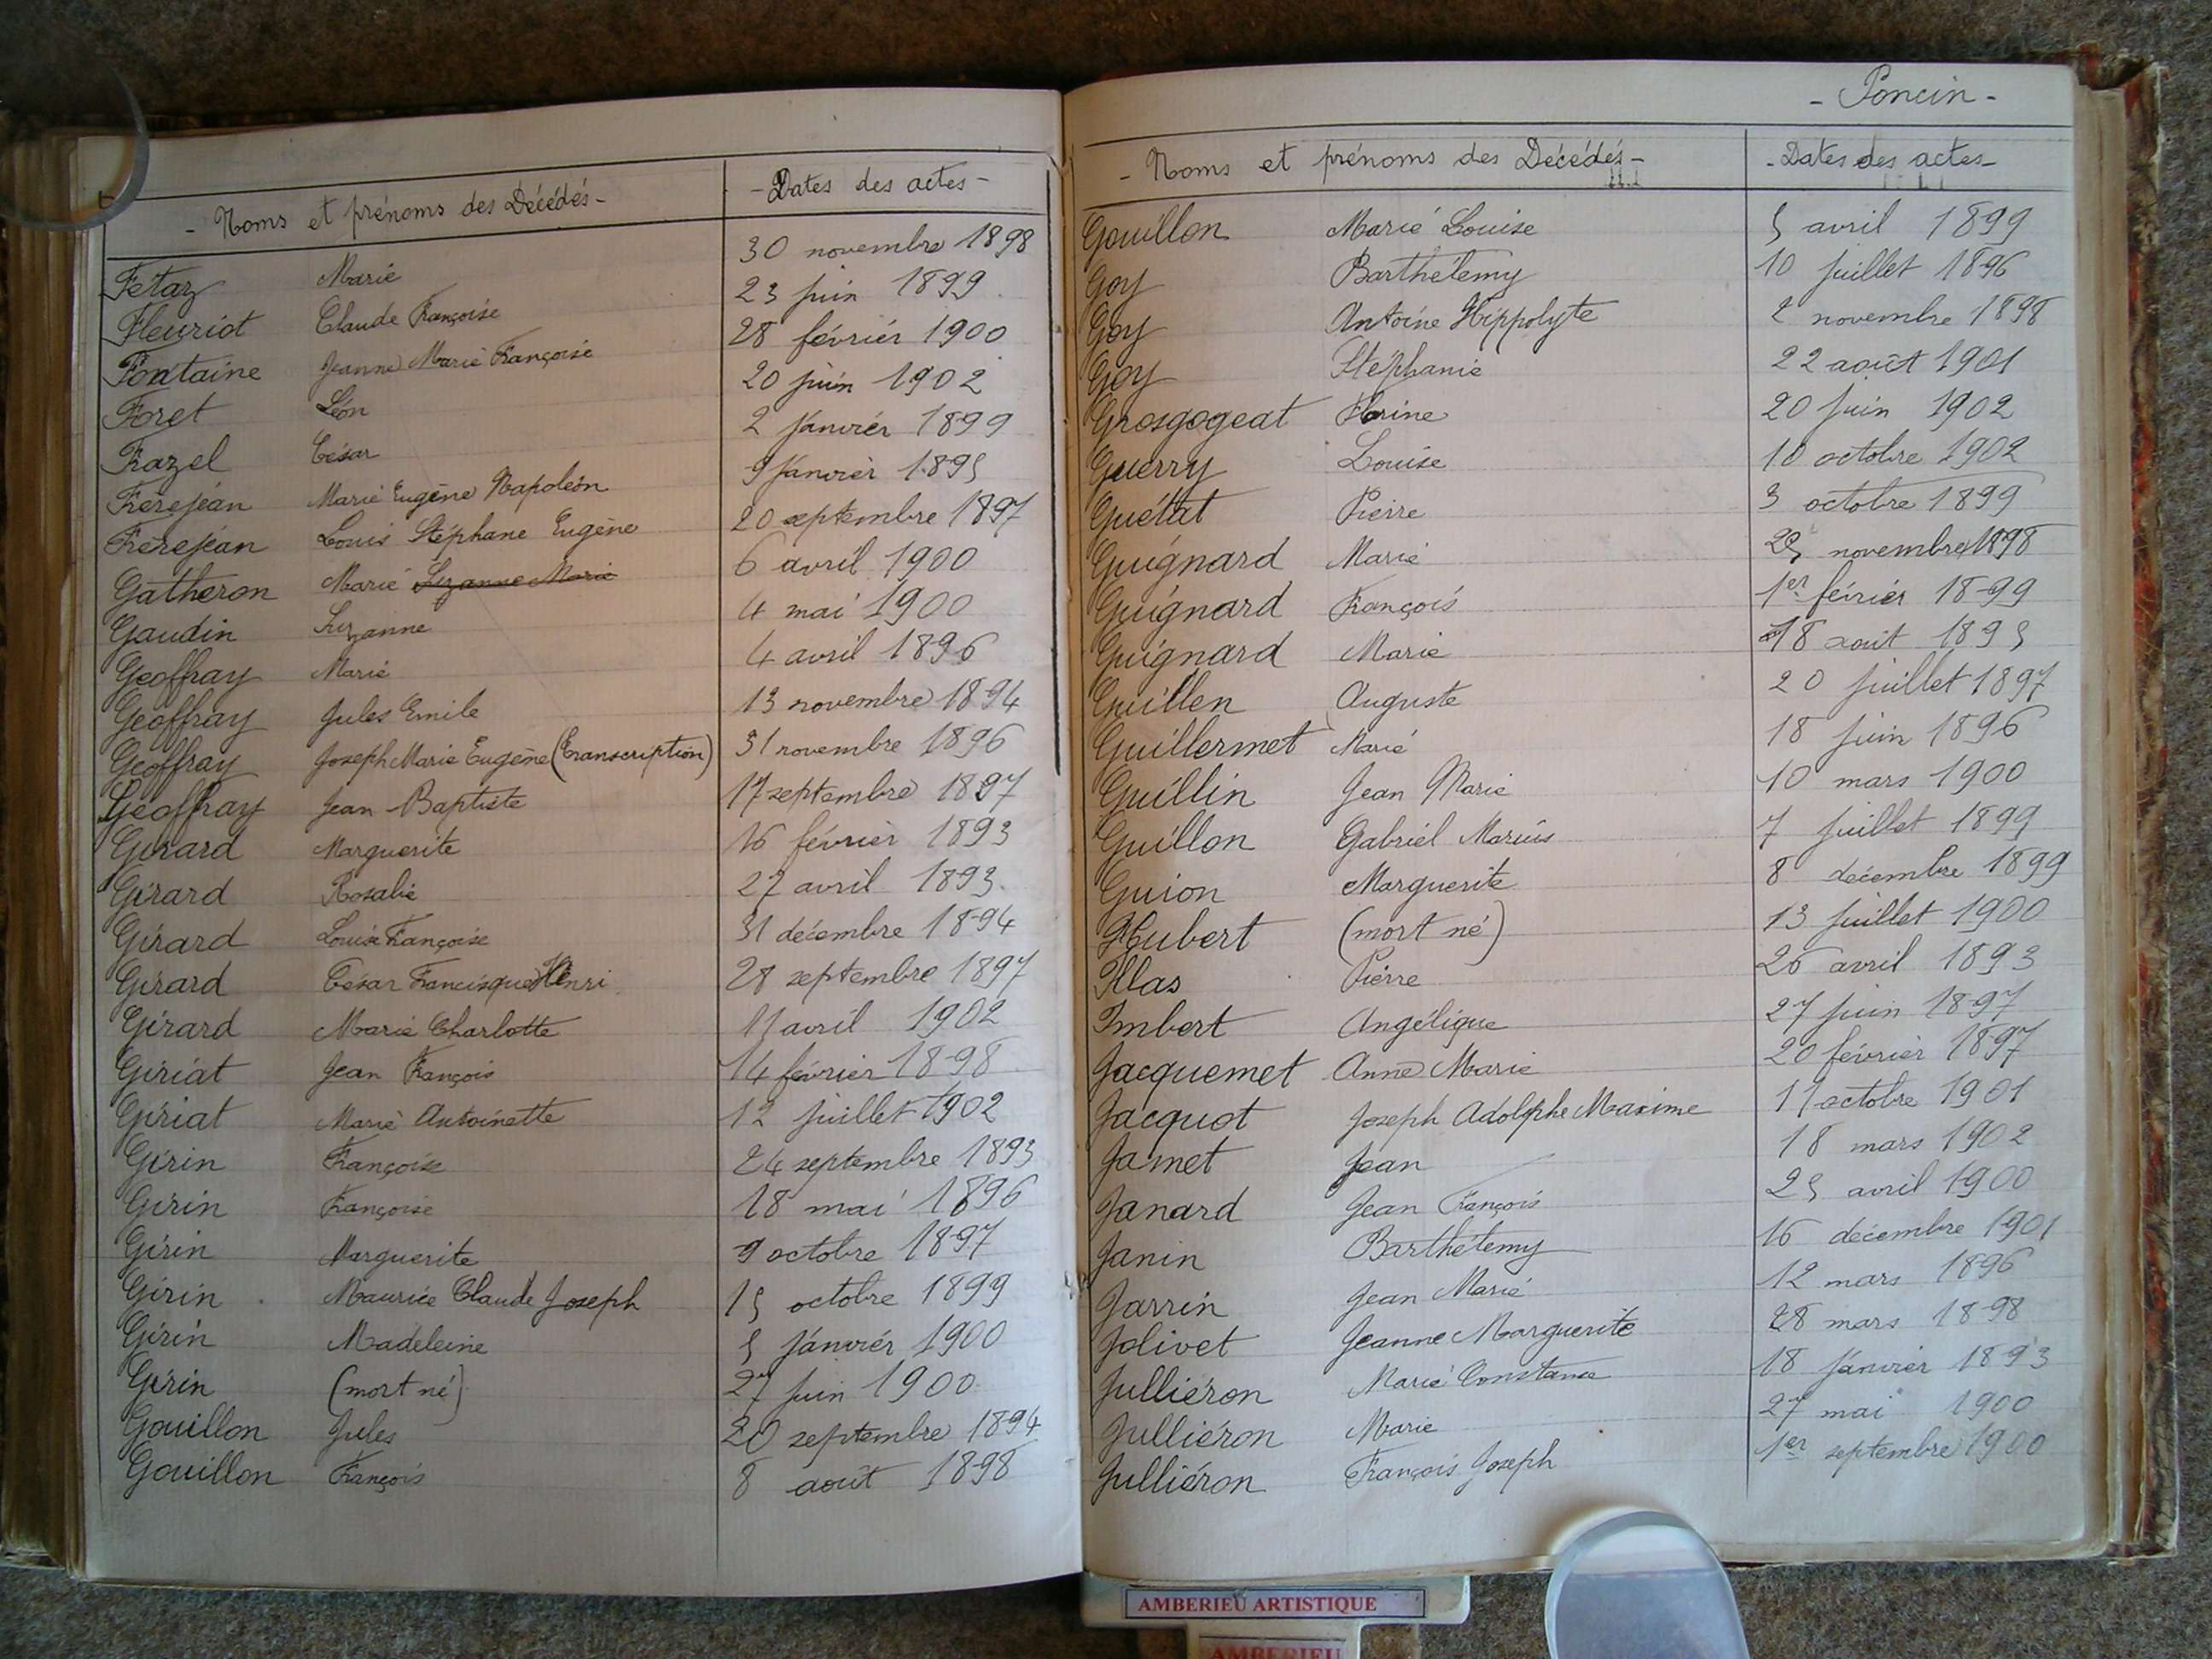 - Noms et prénoms des Décédés - - Dates des actes -
Fétaz Marie 30 novembre 1898
Fleuriot Claude Françoise 23 juin 1899
Fontaine Jeanne Marie Françoise 28 février 1900
Foret Léon 20 juin 1902
Frazel César 2 janvier 1899
Frèrejean Marie Eugène Napoléon 9 janvier 1895
Frèrejean Louis Stéphane Eugène 20 septembre 1897
Gatheron Marie Suzanne Marie 6 avril 1900
Gaudin Suzanne 4 mai 1900
Geoffray Marie 4 avril 1896
Geoffray Jules Emile 13 novembre 1894
Geoffray Joseph Marie Eugène (Transcription) 31 novembre 1896
Geoffray Jean-Baptiste 17 septembre 1897
Girard Marguerite 16 février 1893
Girard Rosalie 27 avril 1893
Girard Louise Françoise 31 décembre 1894
Girard César Francisque Henri 28 septembre 1897
Girard Marie Charlotte 11 avril 1902
Giriat Jean François 14 février 1898
Giriat Marie Antoinette 12 juillet 1902
Girin Françoise 24 septembre 1893
Girin Françoise 18 mai 1896
Girin Marguerite 9 octobre 1897
Girin Maurice Claude Joseph 15 octobre 1899
Girin Madeleine 5 janvier 1900
Girin (mort né) 27 juin 1900
Gouillon Jules 20 septembre 1894
Gouillon François 8 août 1898
- Poncin -
- Noms et prénoms des Décédés - - Dates des actes -
Gouillon Marie Louise 5 avril 1899
Goy Barthélemy 10 juillet 1896
Goy Antoine Hippolyte 2 novembre 1898
Goy Stéphanie 22 août 1901
Grosgogeat Florine 20 juin 1902
Guerry Louise 10 octobre 1902
Guétat Pierre 3 octobre 1899
Guignard Marie 25 novembre 1898
Guignard François 1er février 1899
Guignard Marie 18 août 1895
Guillen Auguste 20 juillet 1897
Guillermet Marie 18 juin 1896
Guillin Jean Marie 10 mars 1900
Guillon Gabriel Marius 7 juillet 1899
Guion Marguerite 8 décembre 1899
Hubert (mort né) 13 juillet 1900
Illas Pierre 26 avril 1893
Imbert Angélique 27 juin 1897
Jacquemet Anne Marie 20 février 1897
Jacquot Joseph Adolphe Maxime 11 octobre 1901
Jamet Jean 18 mars 1902
Janard Jean François 25 avril 1900
Janin Barthélemy 16 décembre 1901
Jarrin Jean Marie 12 mars 1896
Jolivet Jeanne Marguerite 28 mars 1898
Julliéron Marie Constance 18 janvier 1893
Julliéron Marie 27 mai 1900
Julliéron François Joseph 1er septembre 1900
AMBERIEU ARTISTIQUE
AMBERIEU